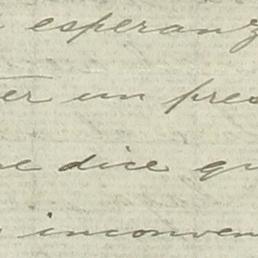 esperanz
er un pres
e dice qu
inconven